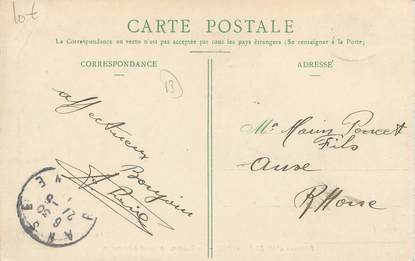 CARTE POSTALE
La Correspondance au recto n'est pas acceptée par tous les pays étrangers (Se renseigner à la Poste)
CORRESPONDANCE
ADRESSE
13
affectueux
Bonjour
Mr Marin Poncet
Fils
Anse
Rhône
ANSE
8 30
21 - 5